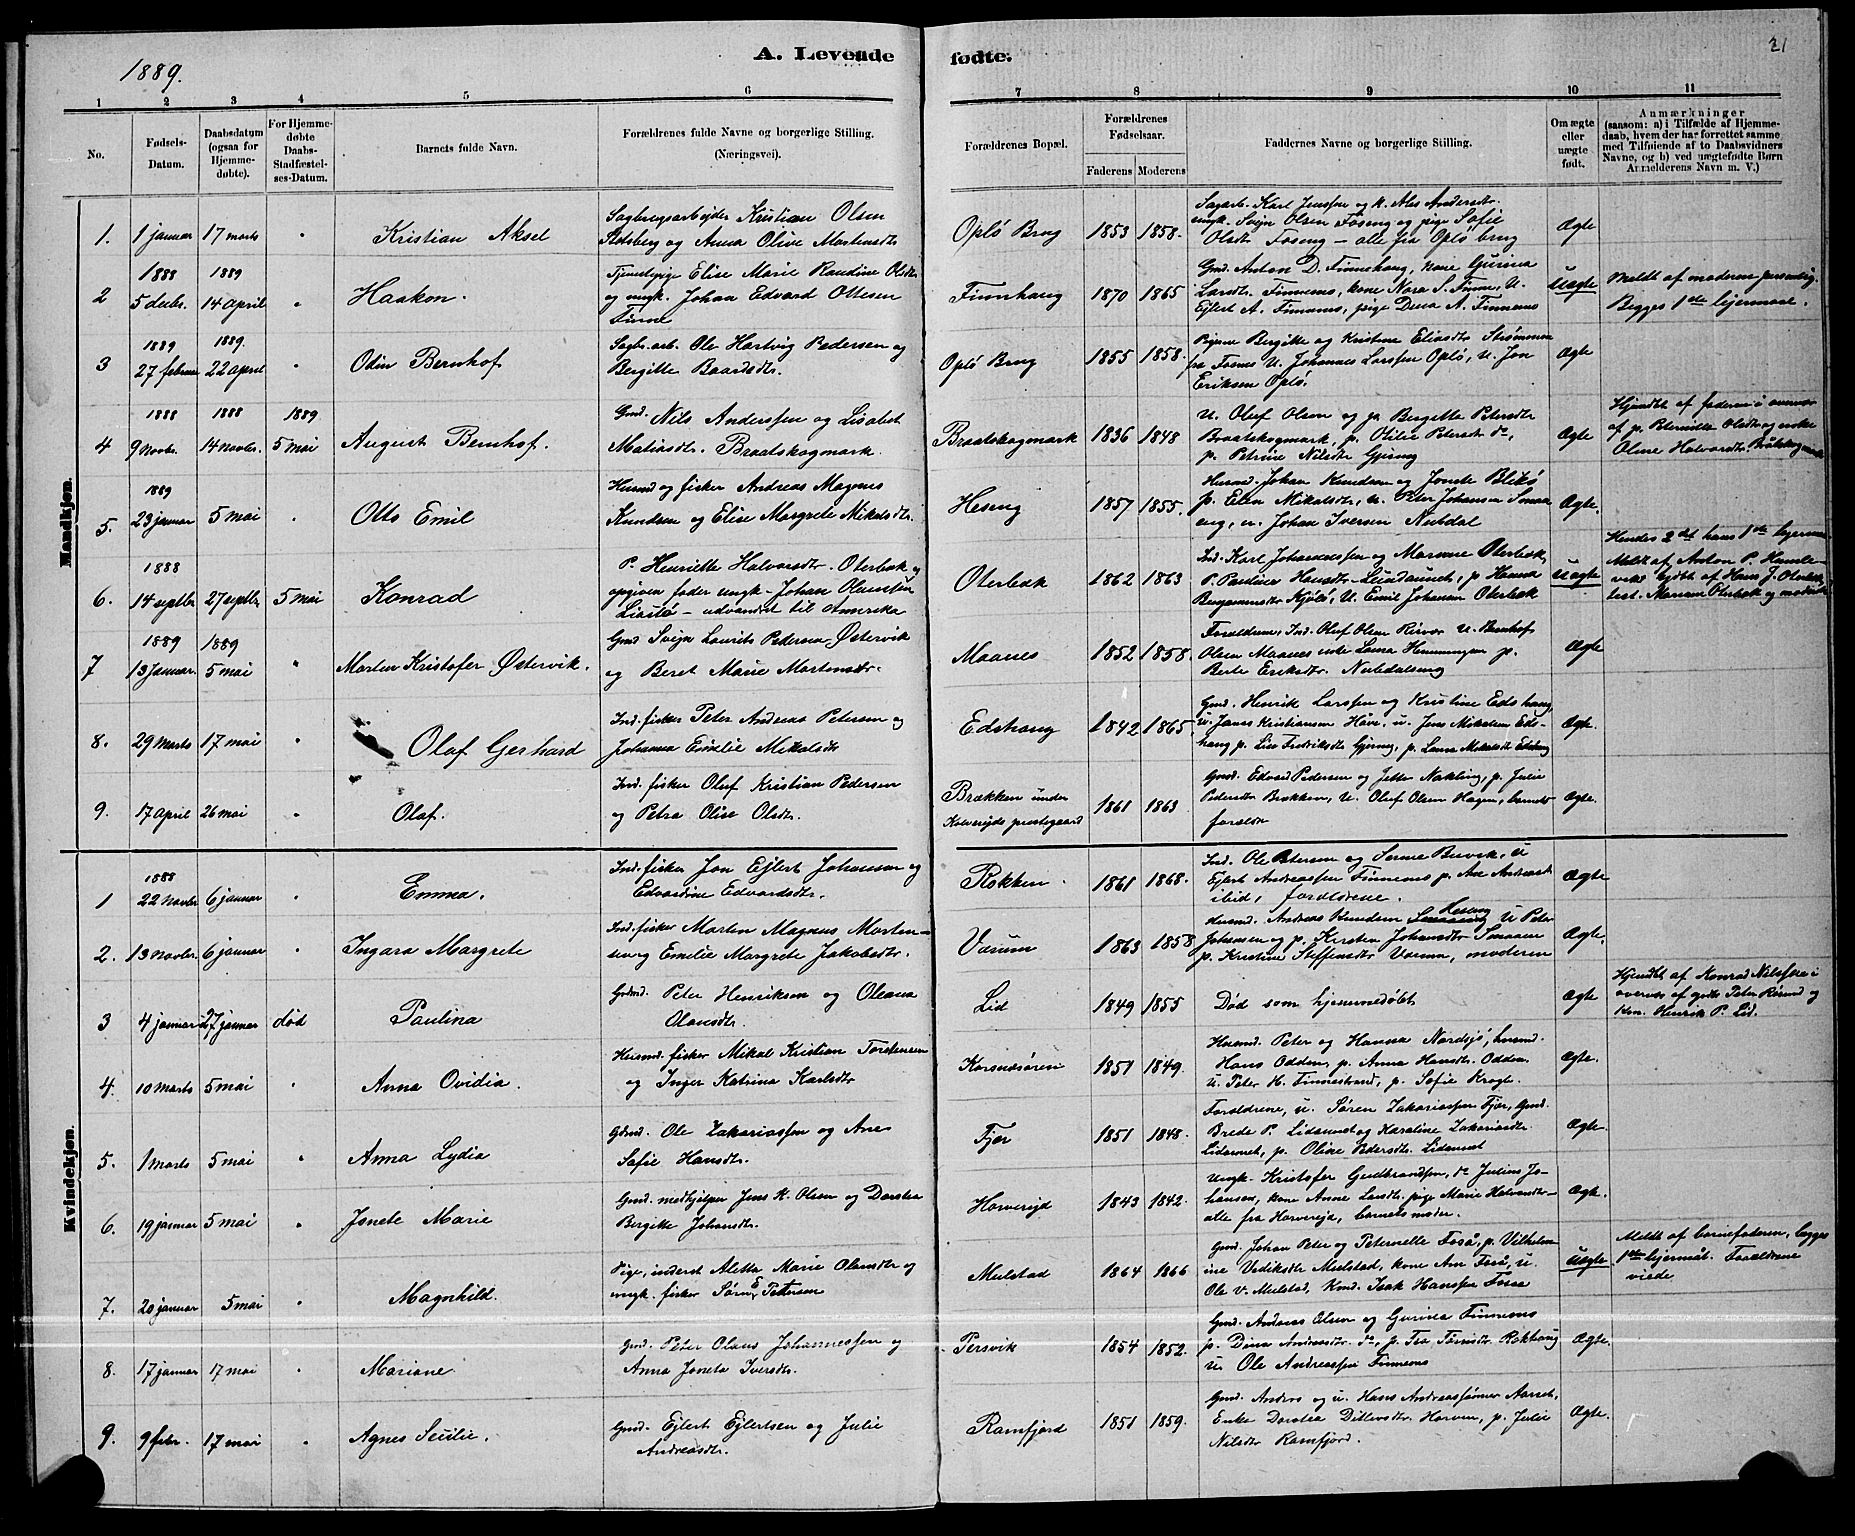 1889.
A. Levende
fødte.
21
1 2 3 4 5 6 7 8 9 10 11
No.
Fødsels-
Datum.
Daabsdatum
(ogsaa for
Hjemme-
døbte).
For Hjemme-
døbte
Daabs-
Stadfæstel-
ses-Datum.
Barnets fulde Navn.
Forældrenes fulde Navne og borgerlige Stilling.
(Næringsvei).
Forældrenes Bopæl.
Forældrenes
Fødselsaar.
Faderens Moderens
Faddernes Navne og borgerlige Stilling.
Om ægte
eller
uægte
født.
Anmærkninger
(saasom: a) i Tilfælde af Hjemme-
daab, hvem der har forrettet samme
med Tilføiende af to Daabsvidners
Navne, og b) ved uægtefødte Børn
Anmelderens Navn m. V.)
Mandkjøn.
1. 1 januar 17 marts " Kristian Aksel
Sagbrugsarbejder Kristian Olsen
og Anna Olive Martensdtr
Oplø Brug 1853 1858.
Sagarb. Karl Jenssen og k. Ales Andersdtr.
ungk. Svejn Olsen Foseng og pige Sofie
Olsdtr Foseng – alle fra Oplø brug
Ægte
1888 1889
2 5 decbr. 14 april " Haakon.
Tjenestepige Elise Marie Raudine Olsdtr
og ungk. Johan Edvard Ottesen
Finne
Finnhaug 1870 1865
Gmd. Anton D. Finnehaug, kone Gurina
Larsdtr. Finnemo, kone Nora S. Finne, U.
Ejlert A. Finnemo, pige Dena A. Finnemo
Uægte
Meldt af moderen personlig.
Begges 1ste lejermaal.
1889 1889.
3 27 februar 22 april " Odin Bernhof
Sagbr.arb. Ole Hartvig Pedersen og
Bergitte Baardsdtr.
Oplø Brug 1855 1858.
Pigerne Bergitte og Kristine Eliasdtr Strømmen
fra Fosnes U. Johannes Larssen Oplø, U. Jon
Eriksen Oplø.
Ægte
1888 1888 1889
4 9 novbr. 14 novbr. 5 mai August Bernhof.
Gmd. Nils Anderssen og Lisabet
Matiasdtr. Braatskogmark.
Braatskogmark 1836 1848
U. Oluf Olsen og p. Bergitte Petersdtr
Braatskogmark, p. Otilie Petersdtr do,
p. Petrine Nilsdtr Gjerng
Ægte
Hjemdbt af faderen i overvær
af p. Peternille Olsdtr og enke
Oline Halvardsdtr. Braatskogmark
1889
5. 23 januar 5 mai " Otto Emil
Husmd og fisker Andreas Magnus
Knudsen og Elise Margrete Mikalsdtr.
Heseng 1857 1855.
Husmd. Johan Knudsen og Jonete Blikø
p. Elen Mikalsdtr, u. Peter Johansen Smaa
eng, u. Johan Iversen Nubdal
Ægte.
1888
6. 14 septbr 27 septbr. 5 mai Konrad
P. Henriette Halvarsdtr. Oterbæk og
opgiven fader ungk. Johan Olaussen
– udvandret til Amerika
Oterbæk 1862 1863
Ind. Karl Johannessen og Mariane Oterbæk,
p. Paulina Hansdtr. Lundaunet, p. Hanna
Benjaminsdtr Kjølø, U. Emil Johansen Oterbæk
Uægte
Hendes 2det hans 1ste lejermaal
Meldt af Anton P. Hamle-
vik. hjdbt af Hans J. Oterbæk
test. Mariane Oterbæk og moderen
1889 1889
7 13 januar. 5 mai " Morten Kristofer Østervik.
Gmd Svejn Laurits Pedersen Østervik
og Beret Marie Martensdtr.
Maanes 1852 1858
Forældrene, Ind. Oluf Olsen Rirvær U. Bernhof
Olsen Maanes enke Lena Henningsen p.
Berte Eriksdtr. Nubdalseng
Ægte
8. 29 marts 17 mai " Olaf Gerhard
Ind. fisker Peter Andreas Petersen og
Johanna Emilie Mikalsdtr
Edshaug 1842 1865.
Gmd. Henrik Larssen og Kristine Edshaug,
u. Janes Kristiansen Have, u. Jens Mikalsen Eds-
haug p. Lise Fredriksdtr Gjerng, p. Lena Mikalsdtr Edshaug
Ægte.
9. 17 april 26 mai " Olaf.
Ind. fisker Oluf Kristian Pedersen
og Petra Olise Olsdtr.
Brækken under
Kolvereids prestegaard 1861 1863
Gmd. Edvard Pedersen og Jette Nakling, p. Julie
Pedersdtr Brækken, U. Oluf Olsen Hagen, barnets
foreldre
Ægte.
Kvindekjøn.
1888
1 22 novbr 6 januar " Emma.
Ind. fisker Jon Ejlert Johansen og
Edvardine Edvardsdtr.
Rokken 1861 1868.
Ind. Ole Petersen og Serine Buvik, U
Ejlert Andreassen Finnemo p. Ane Andreasdtr
ibid, forældrene.
Ægte
2. 13 novbr. 6 januar " Ingara Margrete
Ind. fisker Morten Magnus Morten-
sen og Emilie Margrete Jakobsdtr.
Værum 1863 1858
Husmd. Andreas Knudsen Heseng U Peter
Johansen og p. Kirsten Johansdtr Smaaen
p. Kristine Steffensdtr Værum, moderen
Ægte.
3 4 januar 27 januar død Paulina
Gdmd. Peter Henriksen og Oleana
Olausdtr.
Lid 1849 1855
Død som hjemmedøbt
Ægte
Hjemdbt af Konrad Nilssen i
overvær af gdb Peter Rosend og
Knr. Henrik P. Lid.
4. 10 marts 5 mai " Anna Ovidia.
Husmd. fisker Mikal Kristian Torstensen
og Inger Katrina Karlsdtr
Korsnesøren 1851 1849.
Husmd. Peter og Hanna Nordsjø, husmd.
Hans Odden, p. Anna Hansdtr. Odden
U. Peter H. Finnestrand, p. Sofie Krogh.
Ægte.
5. 1 marts 5 mai " Anna Lydia
Gdmd. Ole Zakariassen og Ane
Sofie Hansdtr.
Fjær 1851 1848.
Forældrene, u. Søren Zakariassen Fjær, Gmd.
Brede P. Lidaunet og Karoline Zakariasdtr.
Lidaunet, p. Oline Pedersdtr. Lidaunet
Ægte.
6. 19 januar 5 mai " Jonete Marie
Gmd. medhjelper Jens K. Olsen og Dorotea
Bergitte Johansdtr.
Horvereid 1843 1842.
Ungk. Kristofer Gudbrandsen, do Julius Jo-
hansen, kone Anne Larsdtr, pige Marie Halvardsdtr –
alle fra Horvereid, barnets moder.
Ægte.
7. 20 januar 5 mai " Magnhild.
Pige, inderst Aletta Marie Olausdtr og
ungk. fisker Søren E Petersen
Mulstad 1864 1866
Gmd. Johan Peter og Peternelle Foså, p. Vilhelm-
ine Vediksdtr Mulstad, kone Ane Foså, U.
Ole V. Mulstad, Kond. Isak Hanssen Fossa
Uægte
Meldt af barnefaderen, begges
1ste lejermål. Forældrene
viede
8. 17 januar 17 mai " Mariane
Gmd. Peter Olaus Johannessen og
Anna Joneta Iversdtr.
Persvik 1854 1852.
Gmd. Andreas Olsen og Gurina Finnemo
p. Dina Andreasdtr. do, p. Rokhaug
u. Ole Andreassen Finnemo
Ægte.
9. 9 febr. 17 mai " Agnes Secilie.
Gmd. Ejlert Ejlertsen og Julie
Andreasdtr.
Ramfjord 1851 1859.
Gmd. Anders og u. Hans Andreassønner Aarset,
Enke Dorotea Ditlevsdtr. Horven, p. Julie
Nilsdtr Ramfjord.
Ægte.